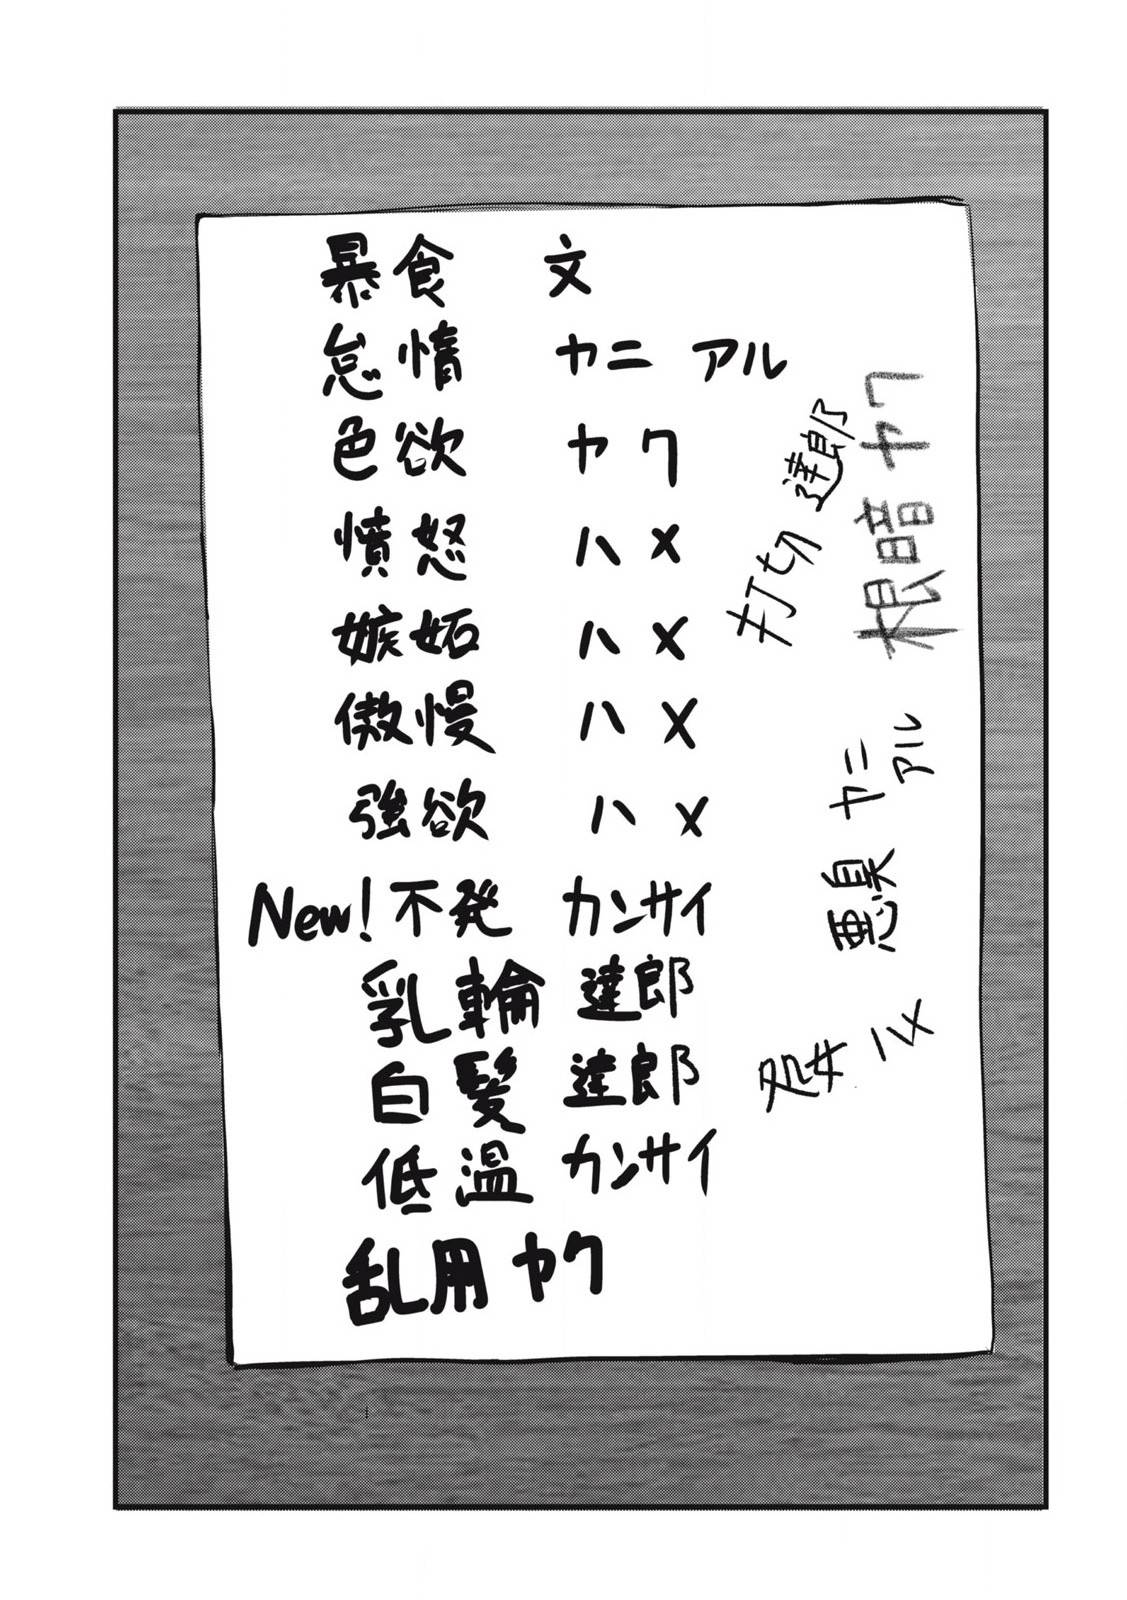 暴食 文
怠惰 ヤニ アル
色欲 ヤク
憤怒 ハメ
嫉妬 ハメ
傲慢 ハメ
強欲 ハメ
New! 不発 カンサイ
乳輪 達郎
白髪 達郎
低温 カンサイ
乱用 ヤク
打切 達郎
根暗 ヤク
悪臭 ヤニ アル
処女 ハメ